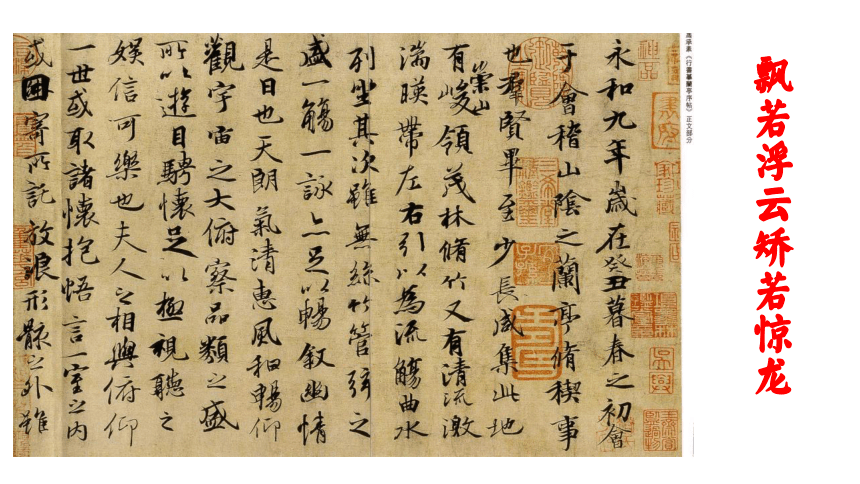 飘若浮云矫若惊龙
馮承素《行書摹蘭亭序帖》正文部分
永和九年歲在癸丑暮春之初會
于會稽山陰之蘭亭脩稧事
也羣賢畢至少長咸集此地
有崇山峻領茂林脩竹又有清流激
湍暎帶左右引以為流觴曲水
列坐其次雖無絲竹管弦之
盛一觴一詠亦足以暢敘幽情
是日也天朗氣清惠風和暢仰
觀宇宙之大俯察品類之盛
所以遊目騁懷足以極視聽之
娛信可樂也夫人之相與俯仰
一世或取諸懷抱悟言一室之內
或因寄所託放浪形骸之外雖